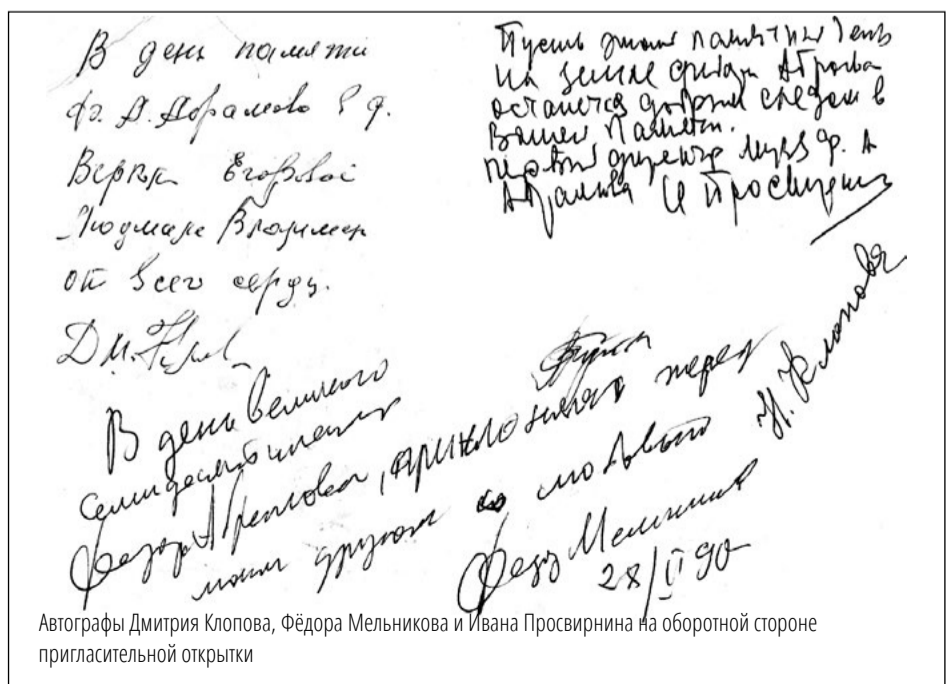 В день памяти
Ф. А. Абрамова
Верки Егоровой
Людмиле Владимир
от всего сердца.
Дм. Клопов
Пусть этот памятный день
на земле Фёдора Абрамова
останется добрым следом в
Вашей памяти.
Первый директор музея Ф. А
Абрамова И Просвирнин
В день великого
семидесятилетия
Фёдора Абрамова, преклоняясь перед
моим другом с молитвой
Н. Клопова
Фёдор Мельников
28/II 90
Автографы Дмитрия Клопова, Фёдора Мельникова и Ивана Просвирнина на оборотной стороне
пригласительной открытки